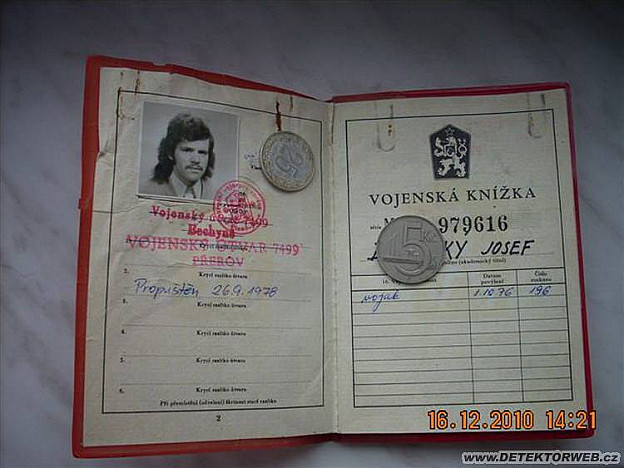 Vojenský útvar 7499
Bechyně
VOJENSKÝ ÚTVAR 7499
PŘEROV
2.
Krycí razítko útvaru
Propuštěn 26.9.1978
3.
Krycí razítko útvaru
4.
Krycí razítko útvaru
5.
Krycí razítko útvaru
6.
Krycí razítko útvaru
Při přemístění (odvelení) škrtnout staré razítko
2
VOJENSKÁ KNÍŽKA
série
979616
5
Kčs
KY JOSEF
(akademický titul)
Datum povýšení
Číslo rozkazu
vojak 1.10.76 196
16.12.2010 14:21
WWW.DETEKTORWEB.cz